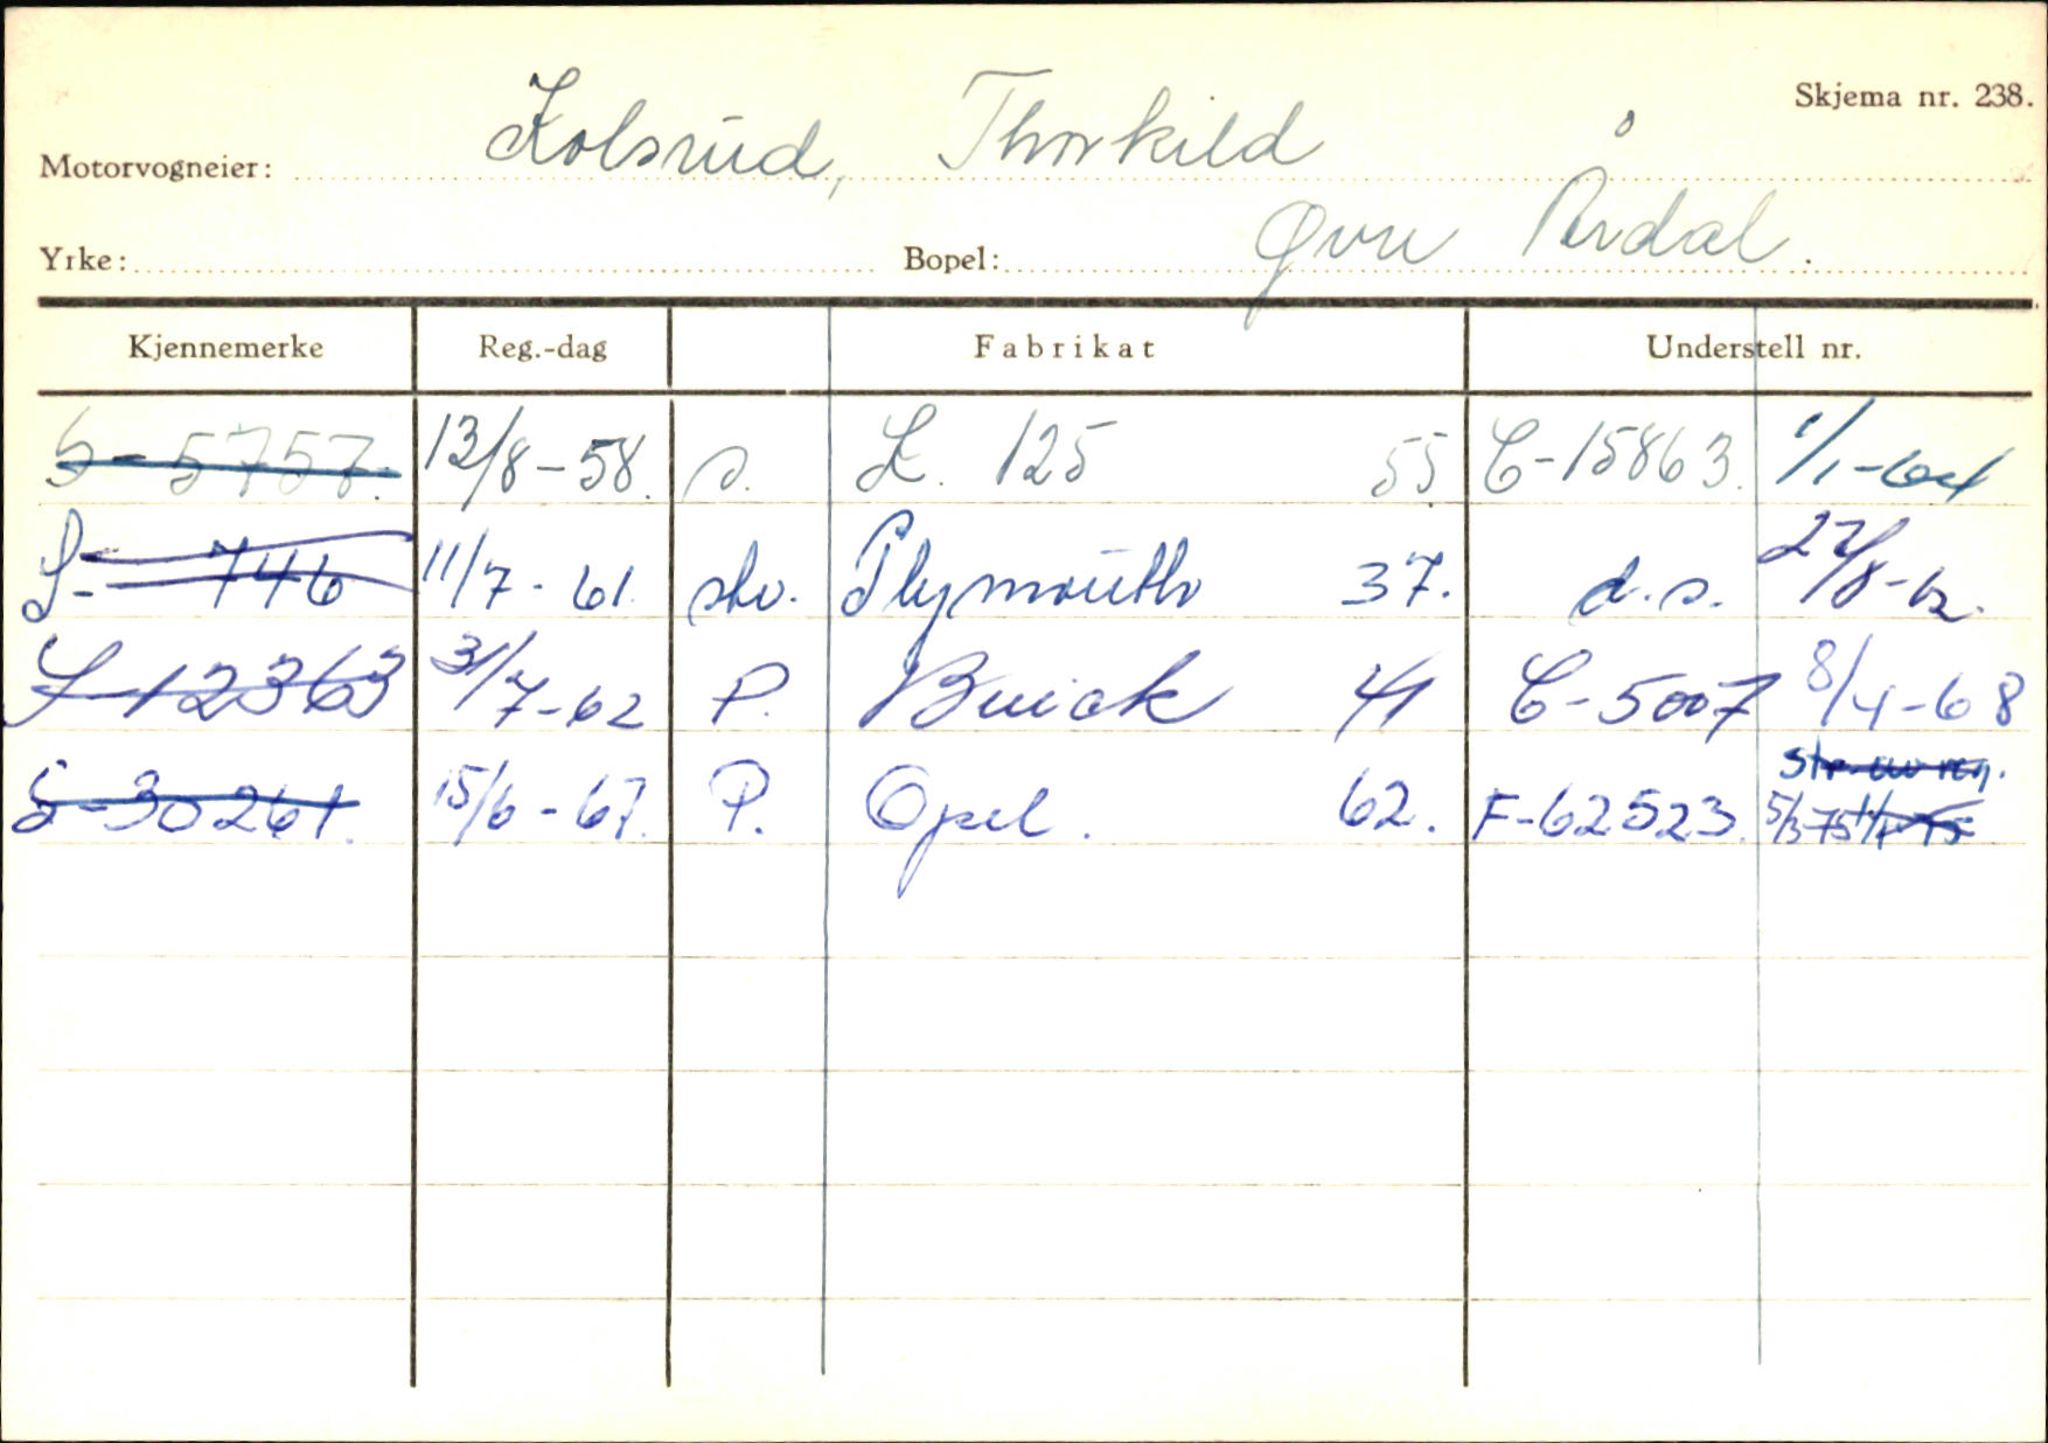 Skjema nr. 238.
Motorvogneier: Kolsrud, Thorkild
Yrke: Bopel: Øvre Årdal.
Kjennemerke Reg.-dag Fabrikat Understell nr.
S-5757. 13/8-58. s. L. 125 55 C-15863. 1/1-64
S-746 11/7-61. stv. Plymouth 37. d.s. 27/8-62.
S-12363 31/7-62 P. Buick 41 C-5007 8/4-68
Str. av reg.
S-30261. 15/6-67. P. Opel. 62. F-62523. 5/3-75 1/1-75